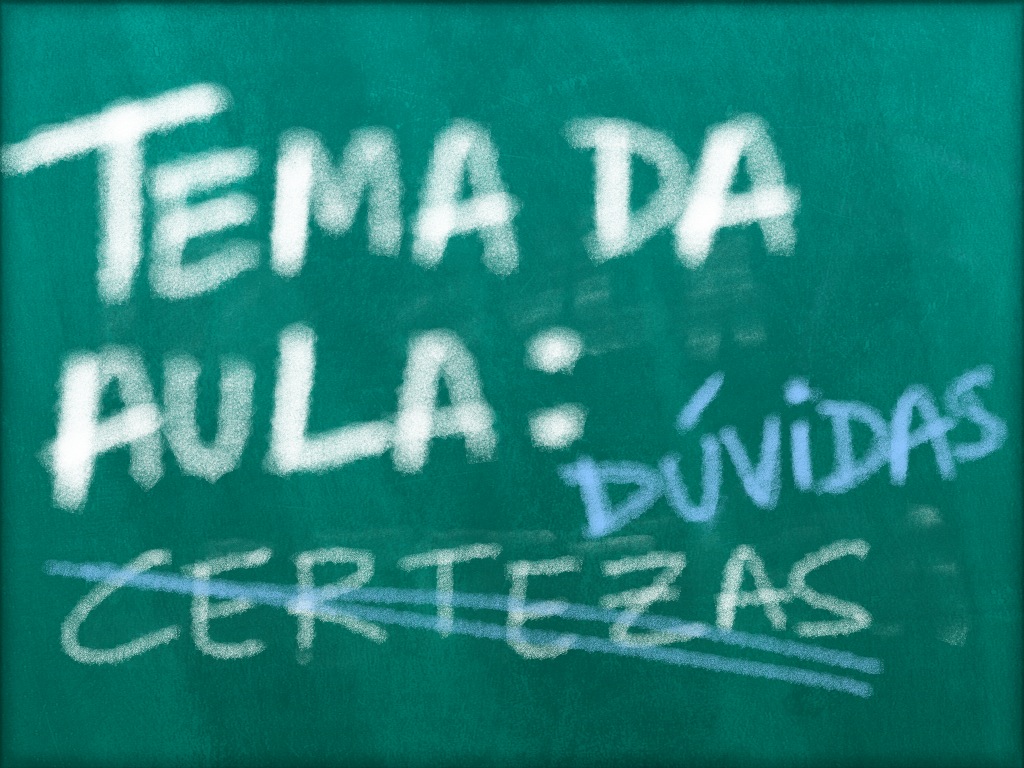 TEMA DA
AULA:
DÚViDAS
CERTEZAS